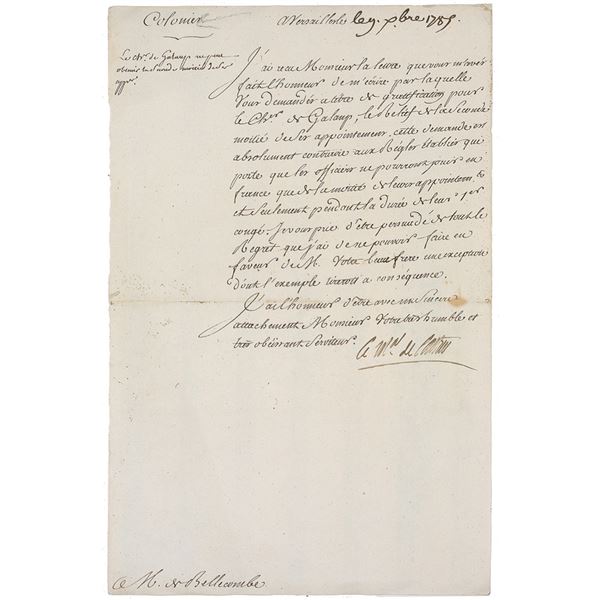 Colonies
A Versailles le 9. xbre 1785
Le Chr. de Galaup ne peut
obtenir la Seconde moitié de Ses
appts.
J'ai reçu Monsieur la lettre que vous m'avez
fait l'honneur de m'écrire par laquelle
Vous demandés a titre de gratification pour
le Chr. de Galaup, le Relief de la Seconde
moitié de Ses appointemens. cette demande est
absolument contraire aux Régles établies qui
porte que les officiers ne pourront jouir en
france que de la moitié de leurs appointem. ts
et Seulement pendant la durée de leurs 1ers
congé. Je vous prie d'être persuadé de tout le
Regret que j'ai de ne pouvoir faire en
faveur de M. Votre beau frere une exception
dont l'exemple tireroit a conséquence.
J'ai l'honneur d'être avec un Sincere
attachement Monsieur Votre très humble et
très obéissant Serviteur.
le Mal. de Castries
M. de Bellecombe